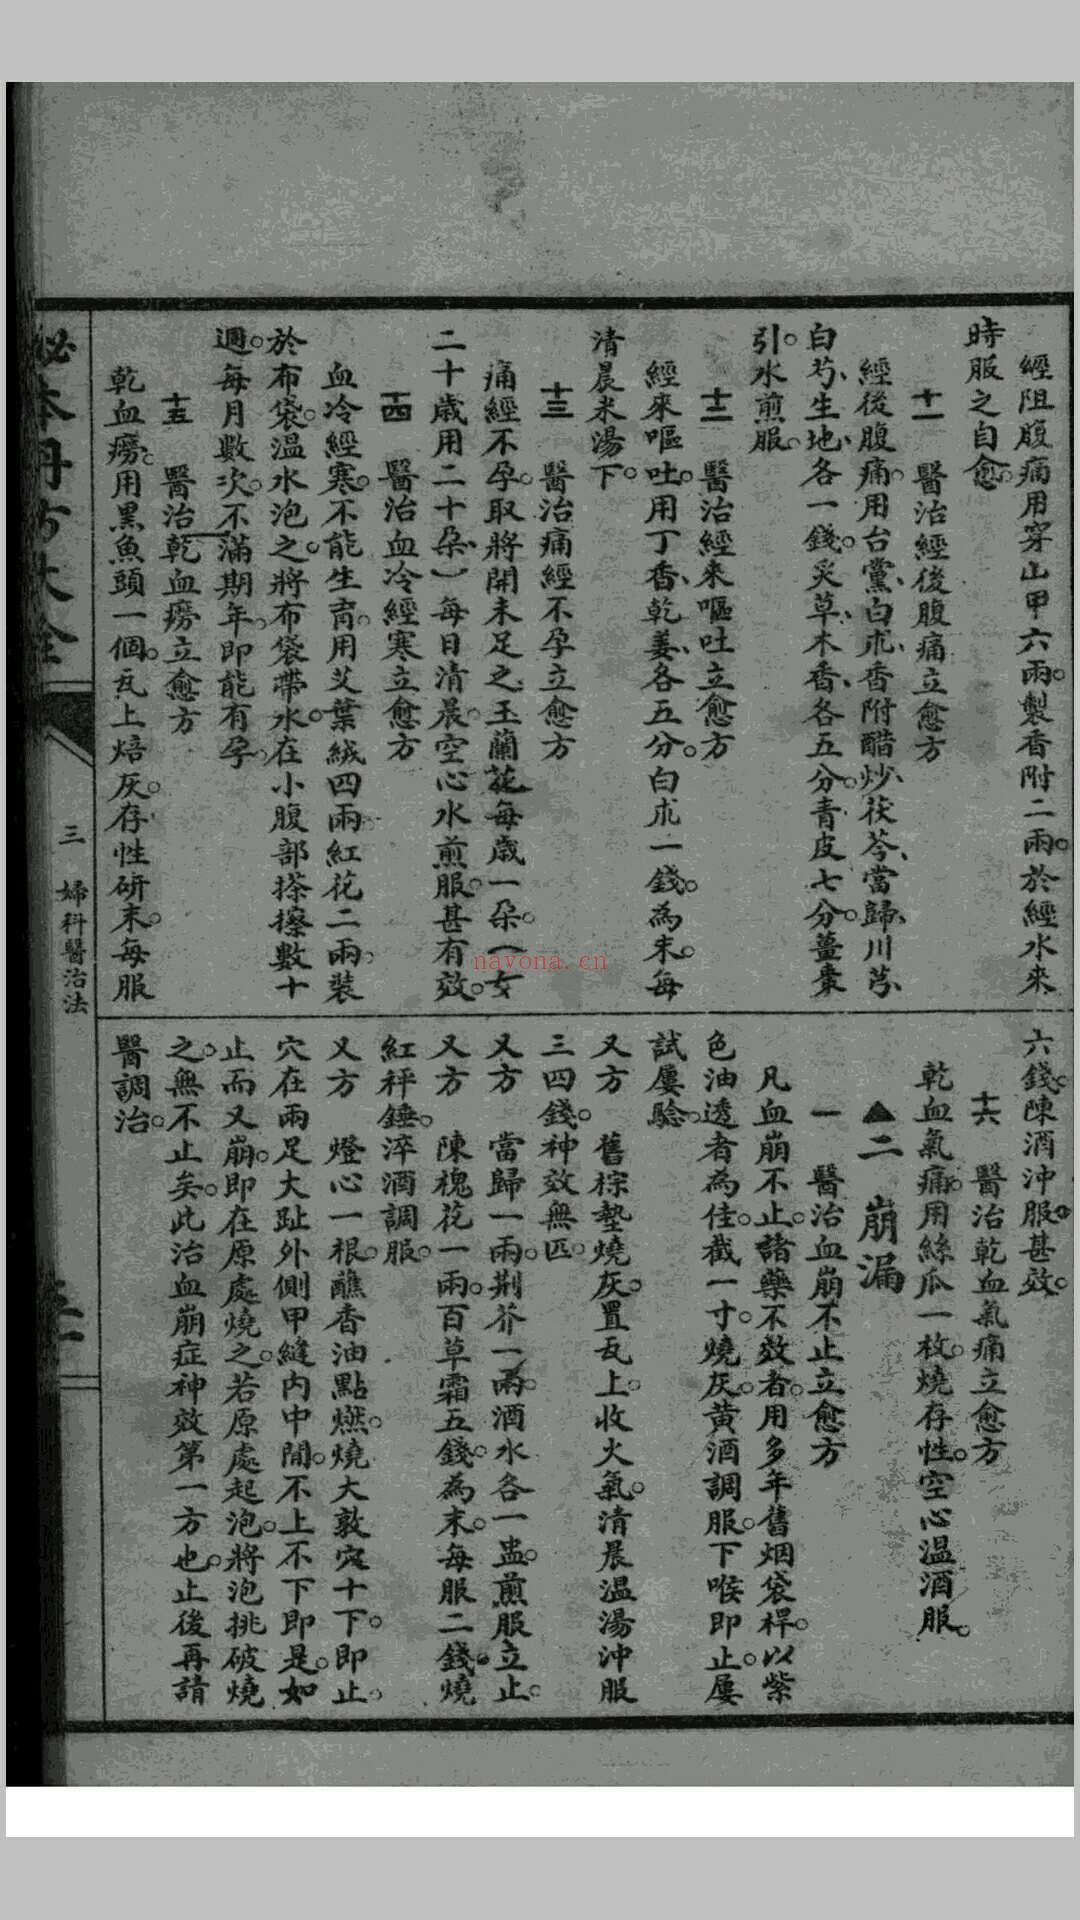 經阻腹痛用穿山甲六兩。製香附二兩。於經水來
時服之自愈。
十一　醫治經後腹痛立愈方
經後腹痛。用台黨、白朮、香附醋炒、茯苓、當歸、川芎、
白芍、生地各一錢。炙草、木香、各五分。青皮七分。薑棗
引。水煎服。
十二　醫治經來嘔吐立愈方
經來嘔吐。用丁香、乾姜、各五分。白朮一錢。為末。每
清晨米湯下。
十三　醫治痛經不孕立愈方
痛經不孕。取將開未足之玉蘭花每歲一朵。（女
二十歲用二十朵、）每日清晨。空心水煎服。甚有效。
十四　醫治血冷經寒立愈方
血冷經寒。不能生育。用艾葉絨四兩。紅花二兩。裝
於布袋。溫水泡之。將布袋帶水。在小腹部搽擦數十
週。每月數次。不滿期年。即能有孕。
十五　醫治乾血癆立愈方
乾血癆。用黑魚頭一個。瓦上焙灰。存性研末。每服
六錢。陳酒沖服。甚效。
十六　醫治乾血氣痛立愈方
乾血氣痛。用絲瓜一枚。燒存性。空心溫酒服。
▲二　崩漏
一　醫治血崩不止立愈方
凡血崩不止。諸藥不效者。用多年舊烟袋桿。以紫
色油透者為佳。截一寸。燒灰。黃酒調服。下喉即止。屢
試屢驗。
又方　舊棕墊燒灰。置瓦上。收火氣。清晨溫湯沖服
三四錢。神效無匹。
又方　當歸一兩。荆芥一兩。酒水各一盅。煎服立止。
又方　陳槐花一兩。百草霜五錢。為末。每服二錢。燒
紅秤錘。淬酒調服。
又方　燈心一根。蘸香油點燃。燒大敦穴十下。即止。
穴在兩足大趾外側甲縫內中間。不上不下即是。如
止而又崩。即在原處燒之。若原處起泡。將泡挑破燒
之。無不止矣。此治血崩症神效第一方也。止後再請
醫調治。
秘本丹方大全
三　婦科醫治法
nayona.cn